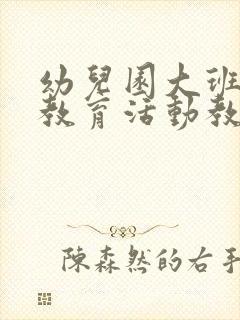 幼兒園大班
教育活動教
陳森然的右手